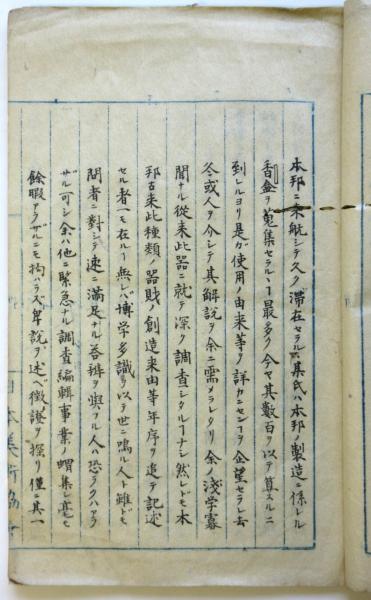 本邦ニ来航シテ久ク滞在セラル某氏ハ本邦ノ製造ニ係レル
香盒ヲ蒐集セラルヽ最多ク今ヤ其数百ヲ以テ算スルニ
到レルヨリ是ガ使用ノ由来等ヲ詳カニセンヿヲ企望セラレ去
冬或人ヲ介シテ其解説ヲ余ニ需メラレタリ余ノ浅学寡
聞ナル従来此器ニ就テ深ク調査シタルヿナシ然レドモ本
邦古来此種類ノ器財ノ創造来由等年序ヲ追テ記述
セル者一モ在ルヿ無レバ博学多識ヲ以テ世ニ鳴ル人ト雖ドモ
問者ニ對シテ速ニ満足ナル答辨ヲ與フル人ハ恐ラクハアラ
ザル可シ余ハ他ニ緊急ナル調査編輯事業ノ蝟集シ毫モ
餘暇アラザルニモ拘ハラズ卑説ヲ述ベ徴證ヲ探リ僅ニ其一